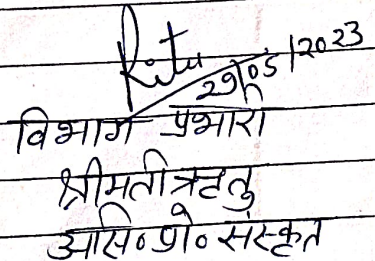 Ritu
29/05/2023
विभाग प्रभारी
श्रीमती ऋतु
असि॰ प्रो॰ संस्कृत